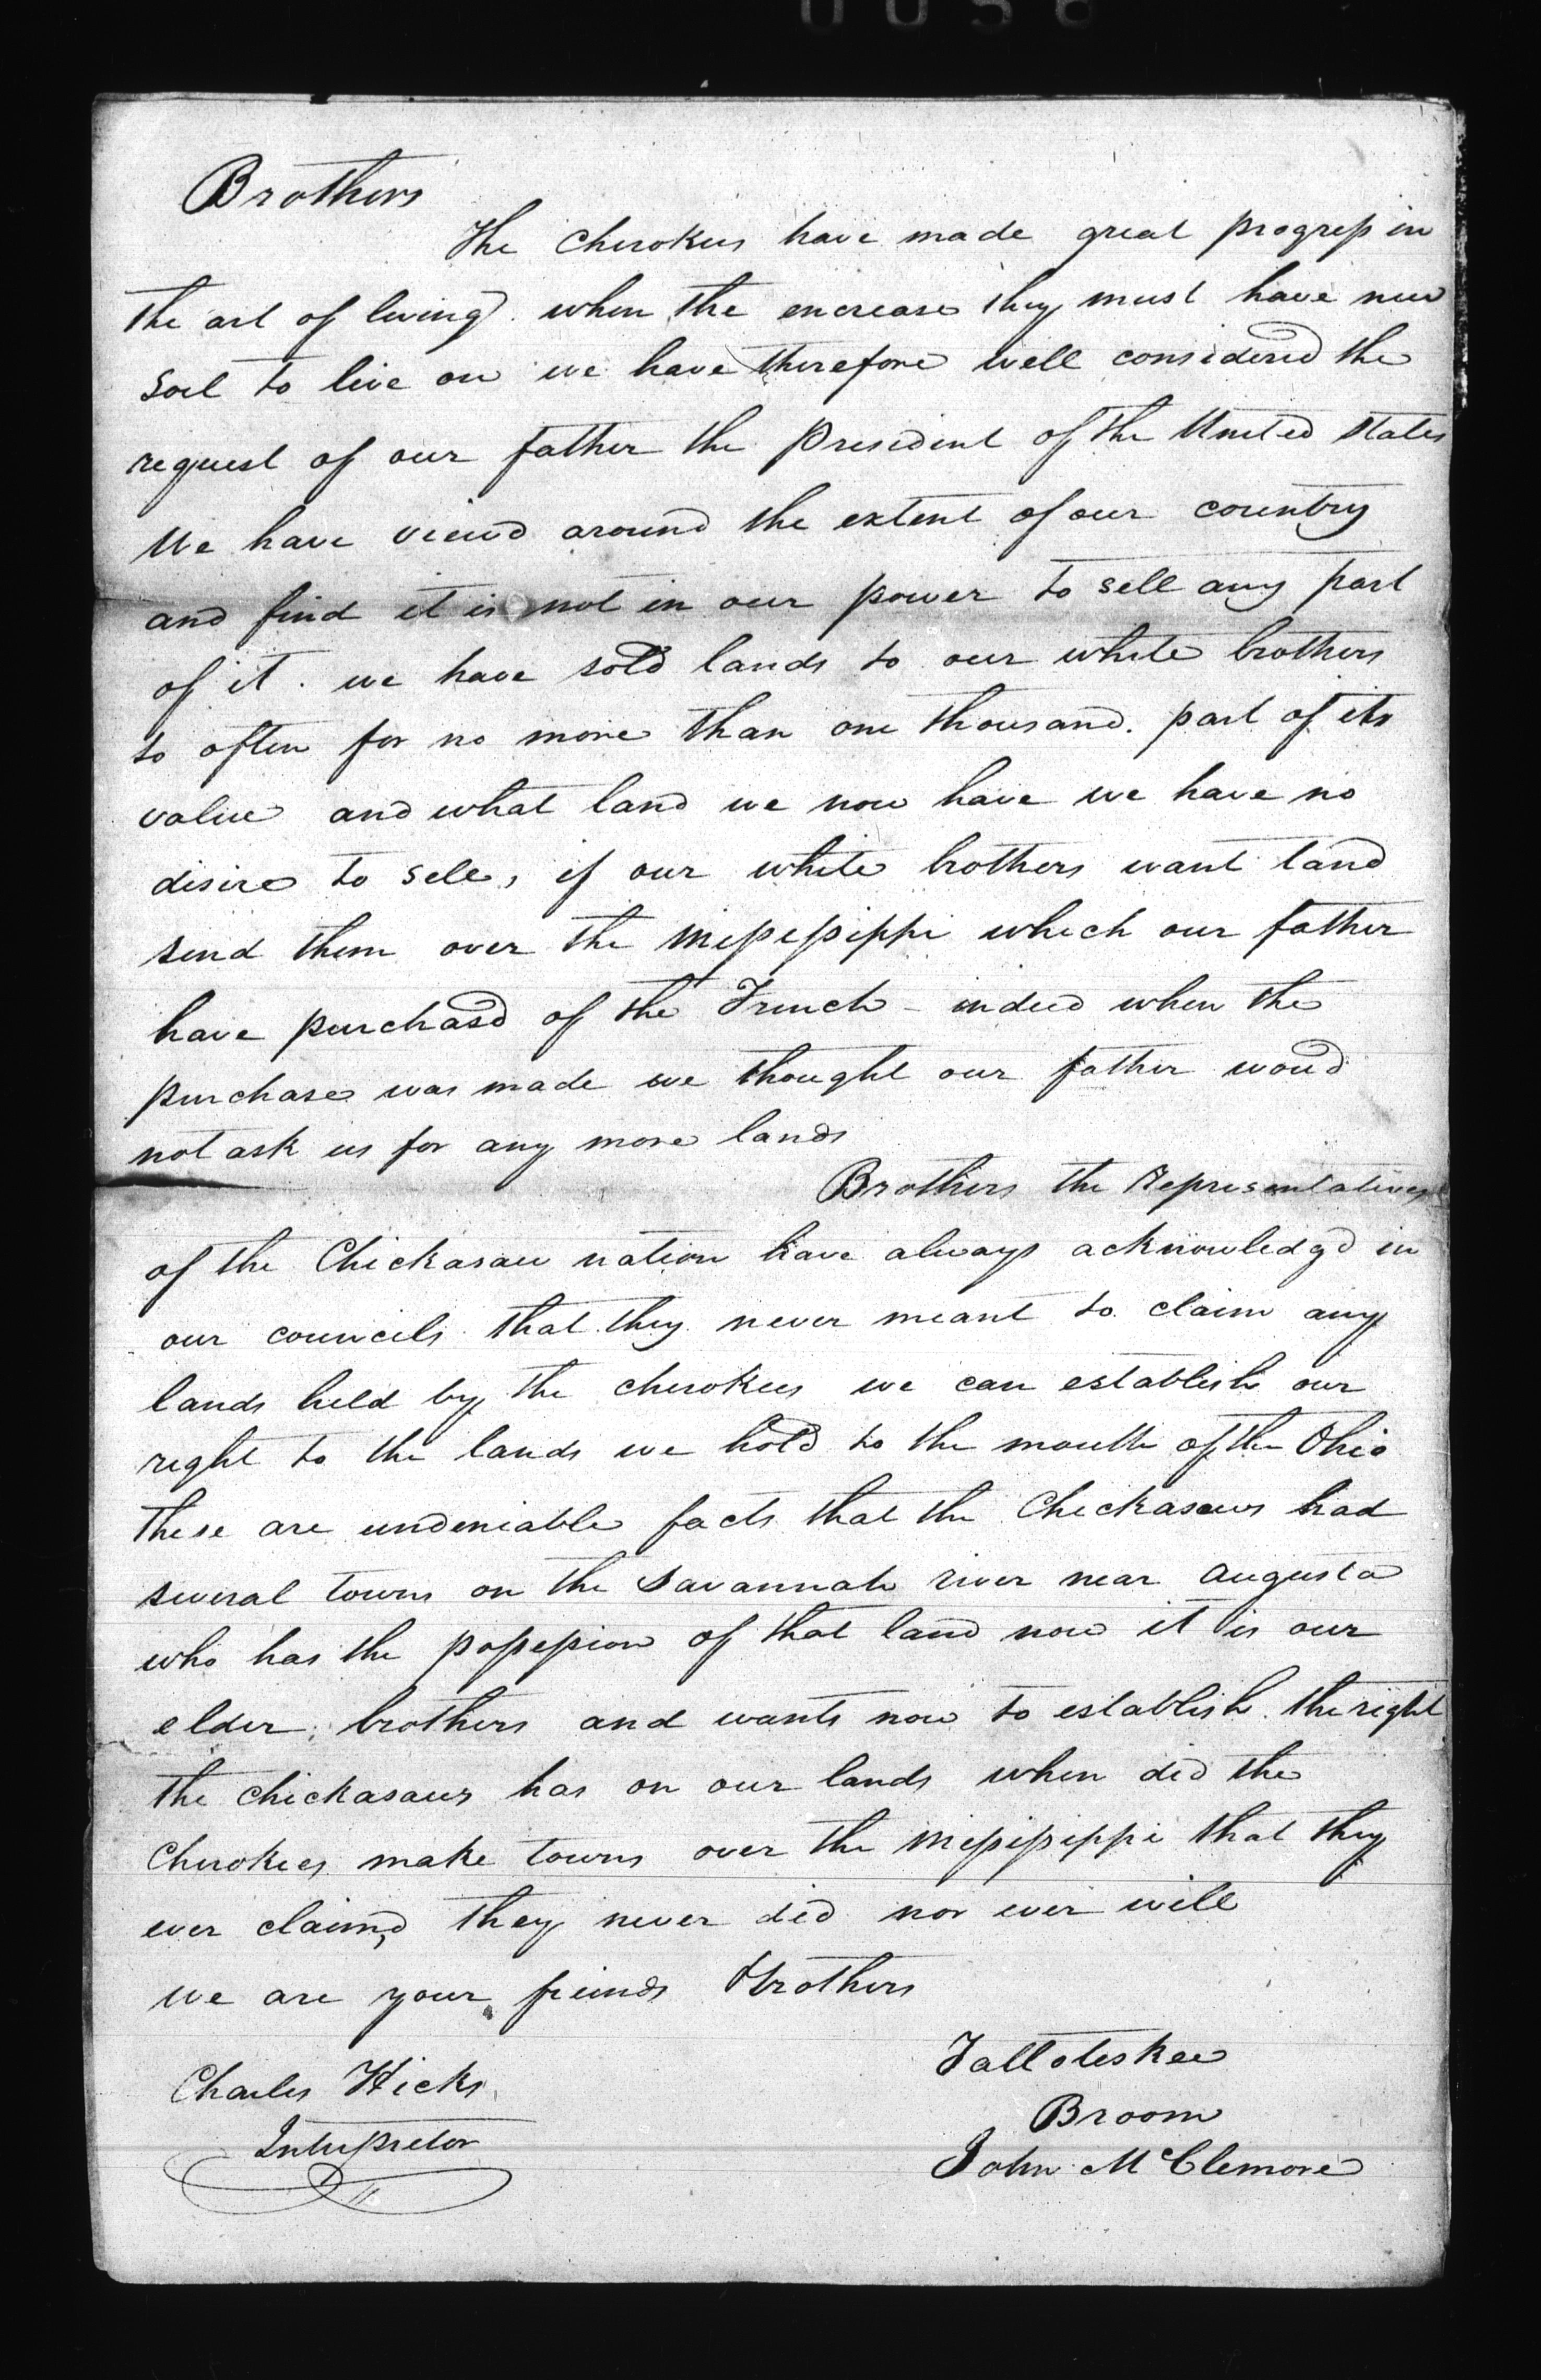 0056
Brothers
The Cherokees have made great progress in
the art of living when the encrease they must have new
soil to live on we have therefore well considered the
request of our father the President of the United States
We have viewd around the extent of our country
and find it is not in our power to sell any part
of it. we have sold lands to our white brothers
to often for no more than one thousand. part of its
value and what land we now have we have no
disire to sell, if our white brothers want land
send them over the Mississippi which our father
have purchasd of the French - indeed when the
purchase was made we thought our father woud
not ask us for any more lands
Brothers the Representatives
of the Chickasaw nation have always acknowledgd in
our councils that they never meant to claim any
lands held by the cherokees we can establish our
right to the lands we hold to the mouth of the Ohio
these are undeniable facts that the Chickasaws had
several towns on the Savannah river near augusta
who has the possession of that land now it is our
elder brothers and wants now to establish the right
the chickasaws has on our lands when did the
Cherokees make towns over the Mississippi that they
ever claimd, they never did nor ever will
we are your friends & brothers
Charles Hicks
Interpretor
Talloteskee
Broom
John McClemore